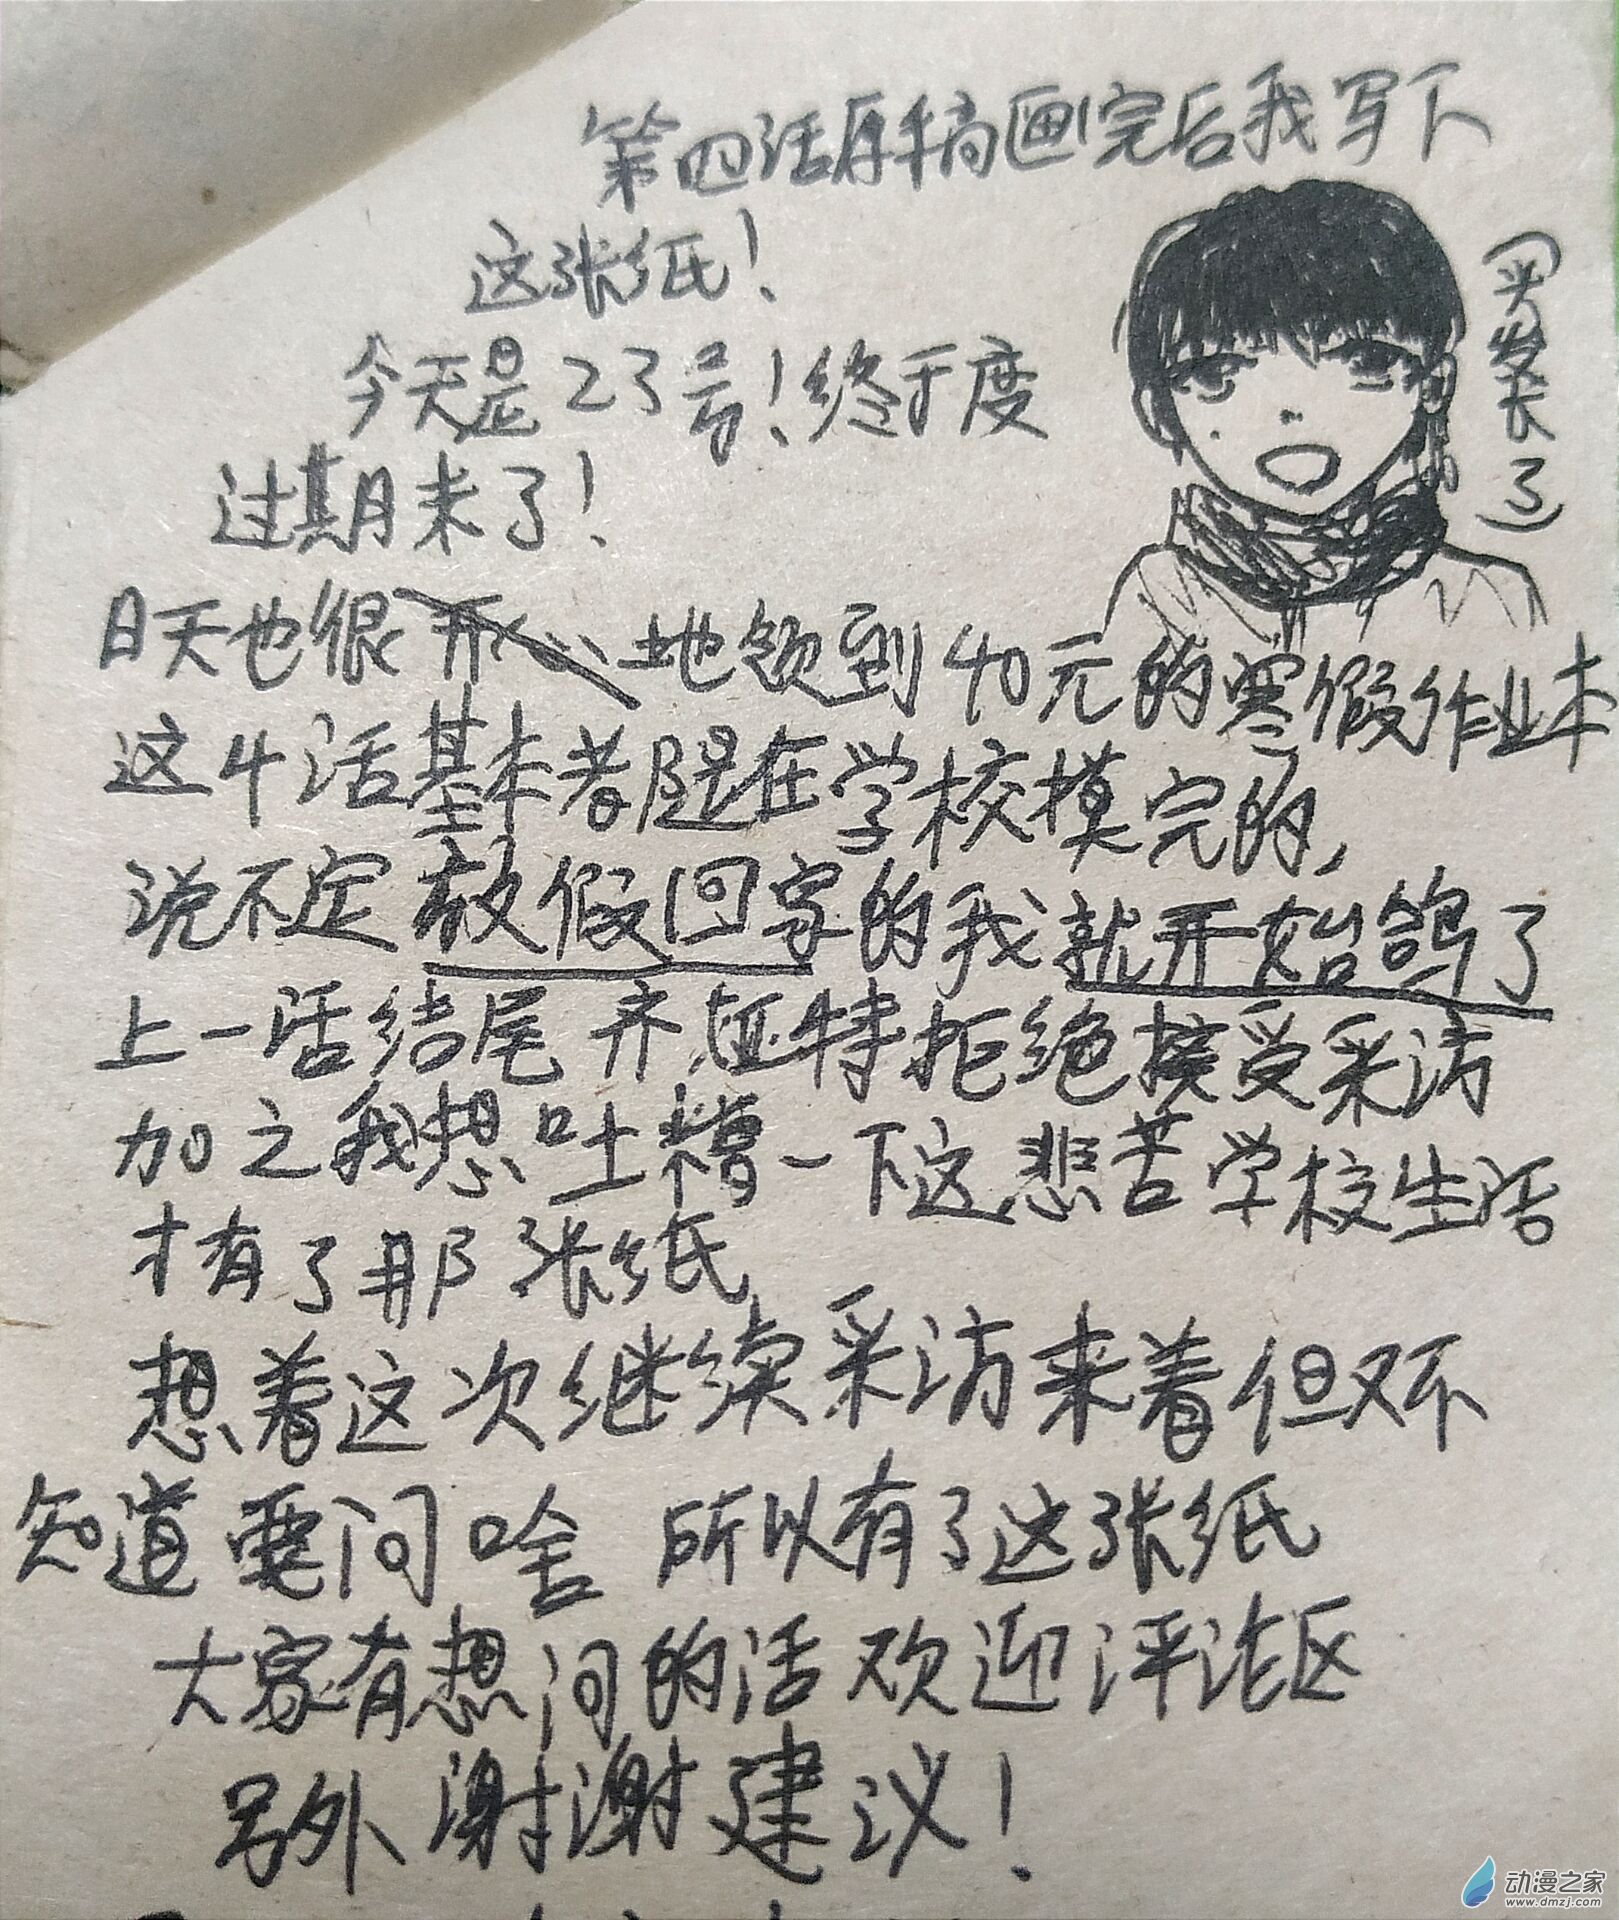 第四话原稿画完后我写下
这张纸！
(头发长了)
今天是23号！终于度
过期末了！
日天也很开心地领到40元的寒假作业本
这4话基本都是在学校摸完的，
说不定放假回家的我就开始鸽了
上一话结尾齐娅特拒绝接受采访
加之我想吐糟一下这悲苦学校生活
才有了那张纸
想着这次继续采访来着但又不
知道要问啥 所以有了这张纸
大家有想问的话欢迎评论区
另外谢谢建议！
动漫之家
www.dmzj.com